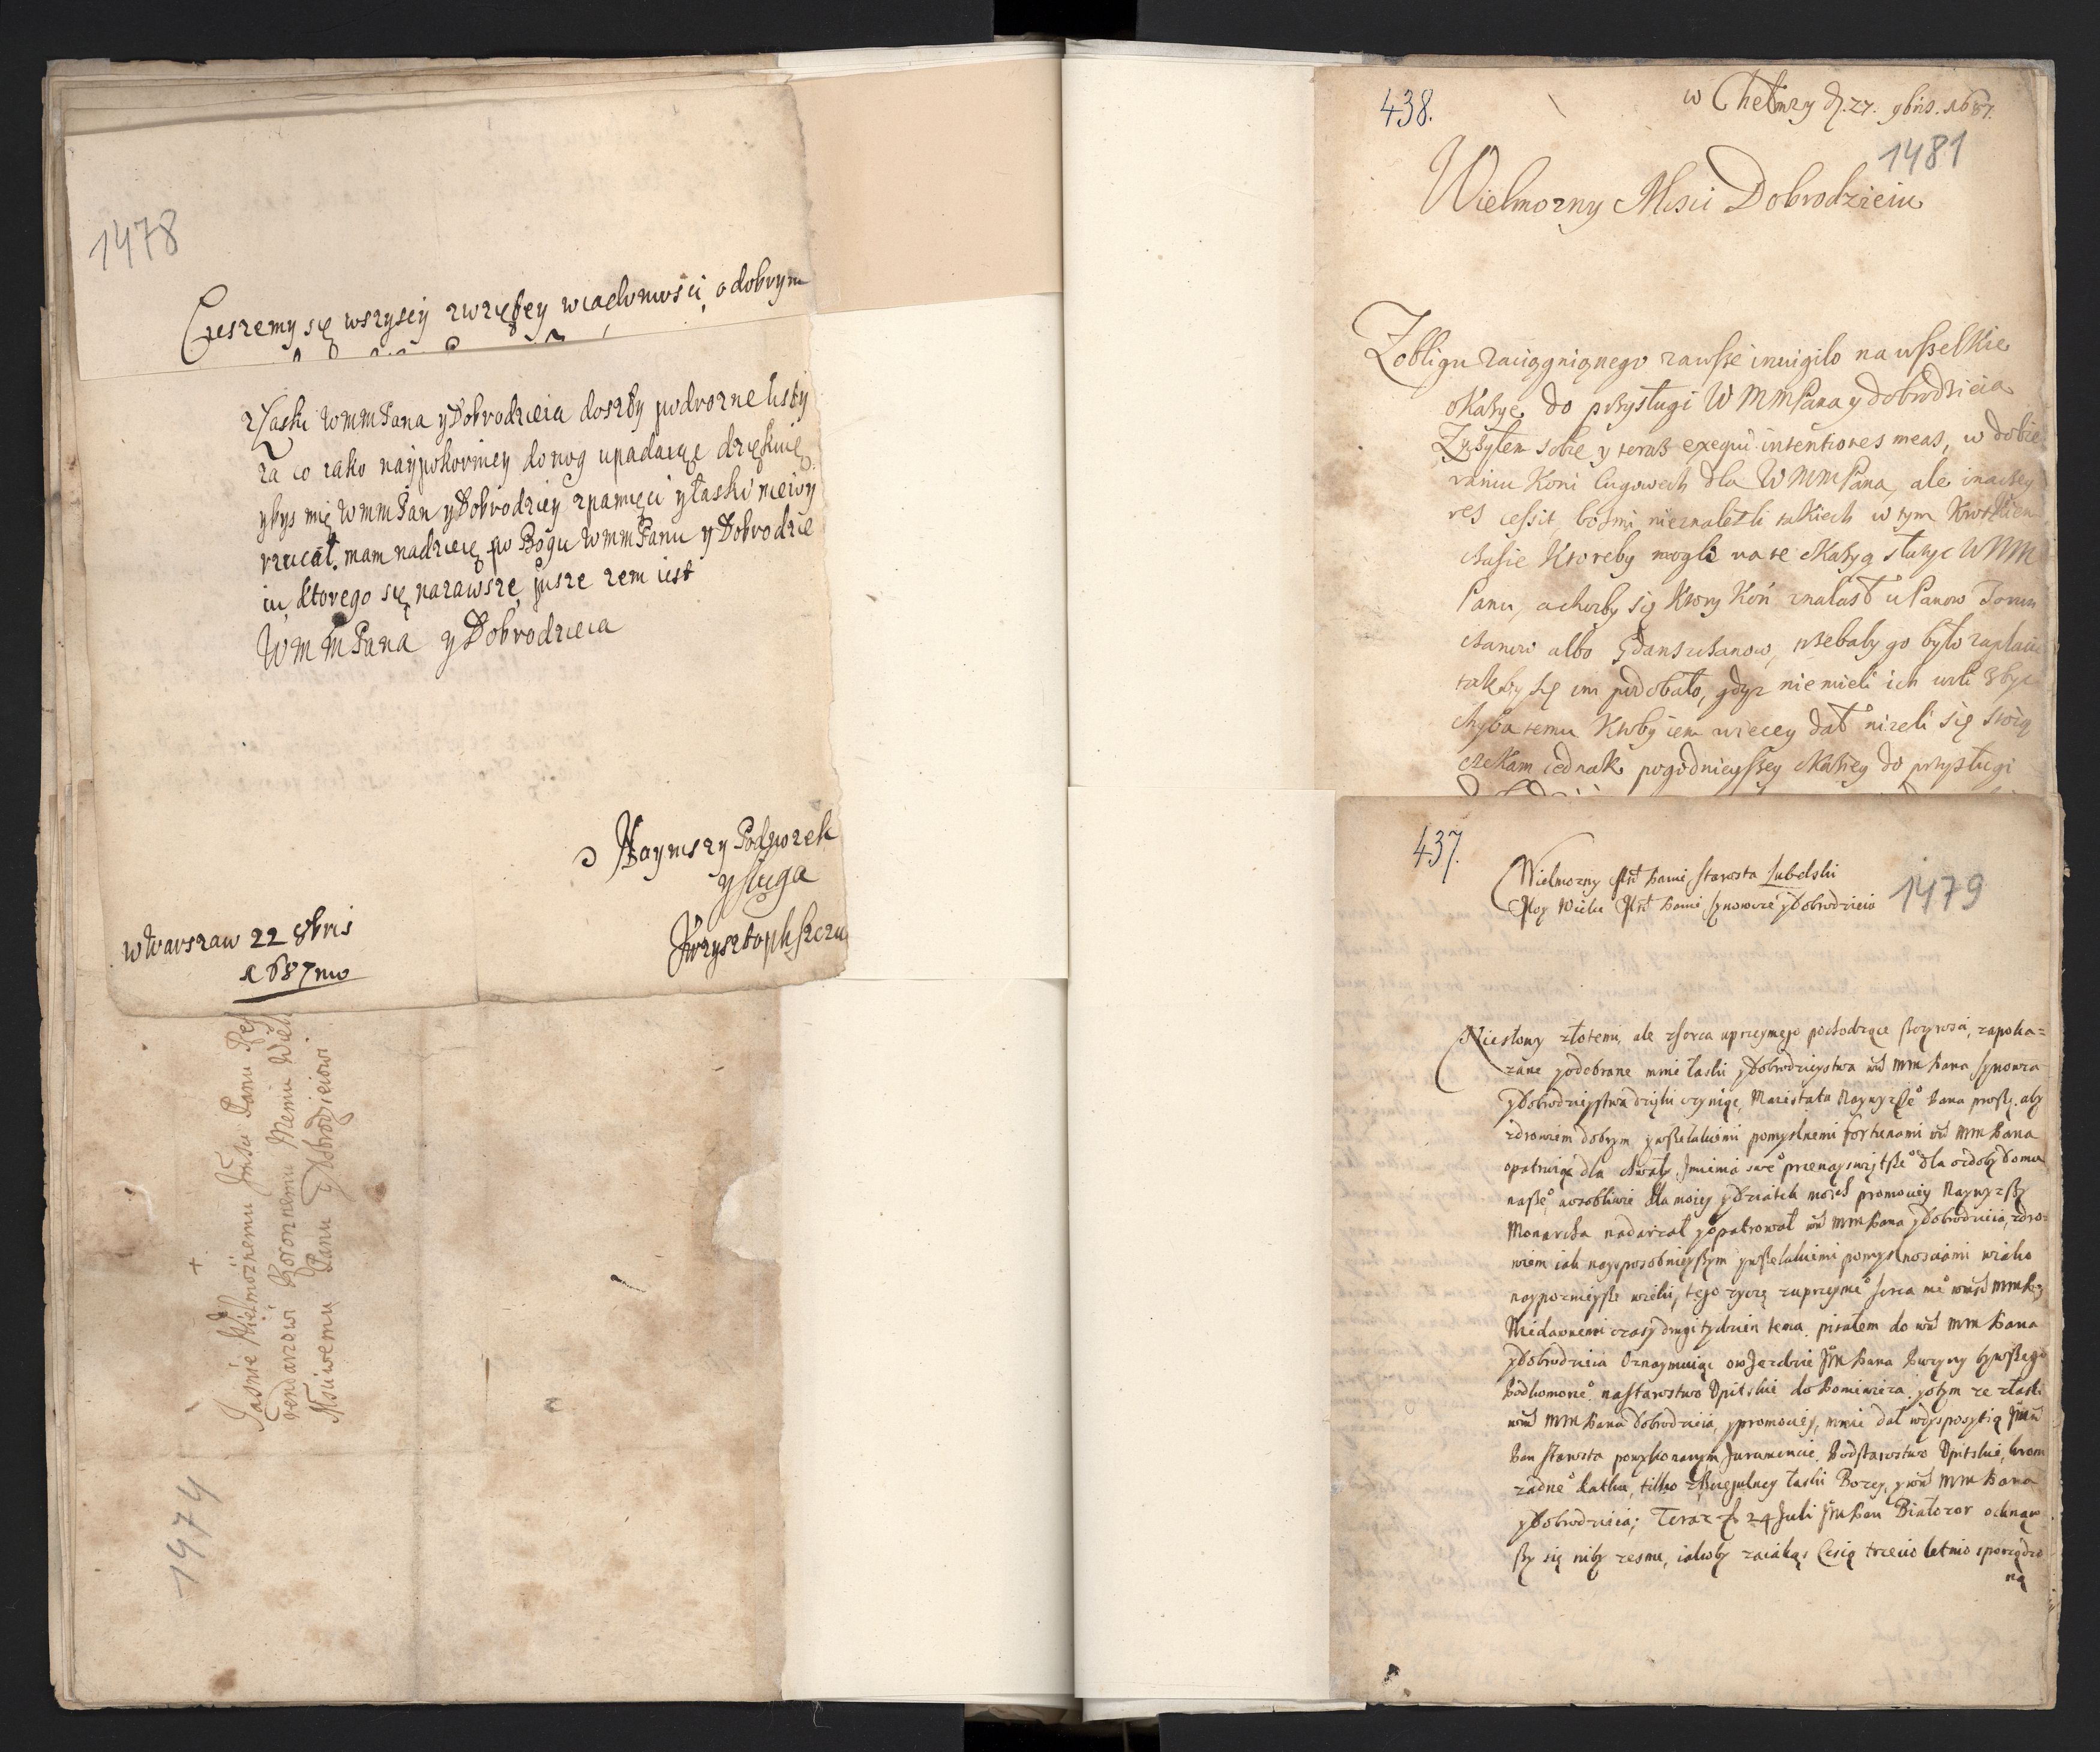 1478
Cieszemy się wszyscy z wiadomości o dobrym
z łaski WMM Pana y Dobrodzieia doszły podrozne listy
za co iako naypokorniey do nog upadaiąc dziękuię
ybys mię WMM Pan y Dobrodziey z pamięci y łaski nie wy
rzucał. mam nadzieię po Bogu WMM Panu y Dobrodzie
iu, ktorego się na zawsze pisze zem iest
WMM Pana y Dobrodzieia
Nayniszy Podnozek
y sługa
Krzysztoph Szczu
w Warszaw 22 8bris
1687mo
Jasnie Wielmoznemu Jmsci Panu Re
rendarzowi Koronnemu Memu Wiel
Msciwemu Panu y Dobrodzieiowi
1974
438.
w Chełmzy d. 27. 9bris. 1687.
1481
Wielmozny Mosci Dobrodzieiu
Z obligu zaciągnionego zawsze invigilo na wszelkie
okazye do przysługi WMM Pana y dobrodzieia
Zyczyłem sobie y teraz exequi intentiones meas, w dobie
raniu koni cugowech dla WMM Pana, ale inaczey
res cessit, bosmi nieznalezli takiech w tym krotkiem
czasie ktoreby mogli na te okazyą słuzyc WMM
Panu, a chocby się ktory koń znalasł u Panow Torun
czanow albo Gdansczanow, trzebaby go było zapłacic
takby się im podobało, gdyz nie mieli ich woli zbyc
chyba temu ktoby iem wiecey dał nizeli się stoią
czekam iednak pogodnieyszey okazyey do przysługi
437.
Wielmozny Mści Panie Starosta Lubelski
Moy Wielce Mści Panie Synowcze y Dobrodzieiu
1479
Niesłowy złotemi, ale z serca uprzeymego pochodzące zapoka=
zane y odebrane mnie łaski y Dobrodzieystwa WM MM Pana Synowca
y Dobrodzieystwa dzięki czynię, Maiestata Naywyższeo Pana proszę aby
zdrowiem dobrym y wszelakiemi pomyslnemi fortunami WM MM Pana
opatruiąc dla chwały Jmienia sweo przenayswiętszeo dla ozdoby domu
naszeo, a osobliwie dla moiey y dziatek moich promociey Naywyższy
Monarcha nadarzał y opatrował WM MM Pana y Dobrodzieia, zdro=
wiem iak naysposobnieyszym y wszelakiemi pomyslnosciami wiako
naypoznieysze wieki, tego zyczę z uprzeymeo serca
Niedawnemi czasy drugi tydzien temu pisałem do WM MM Pana
y Dobrodzieia Oznaymuiąc o Pana bywszego
Podkomorzeo na starostwo Upitskie do Poniewieza, y o tym ze z łaski
WM MM Pana Dobrodzieia, y promociey, mnie dał
Pan starosta po wykonanym Juramencie, Podstarostwo Upitskie, krom
zadneo datku, tilko z łaski Bozey, y WM MM Pana
y Dobrodzieia; Teraz d 24 Juli JM Pan Białozor ocknąw
szy się niby ze snu, iakoby zaiakąs Cesią trzecio letnio sporządzo
ną